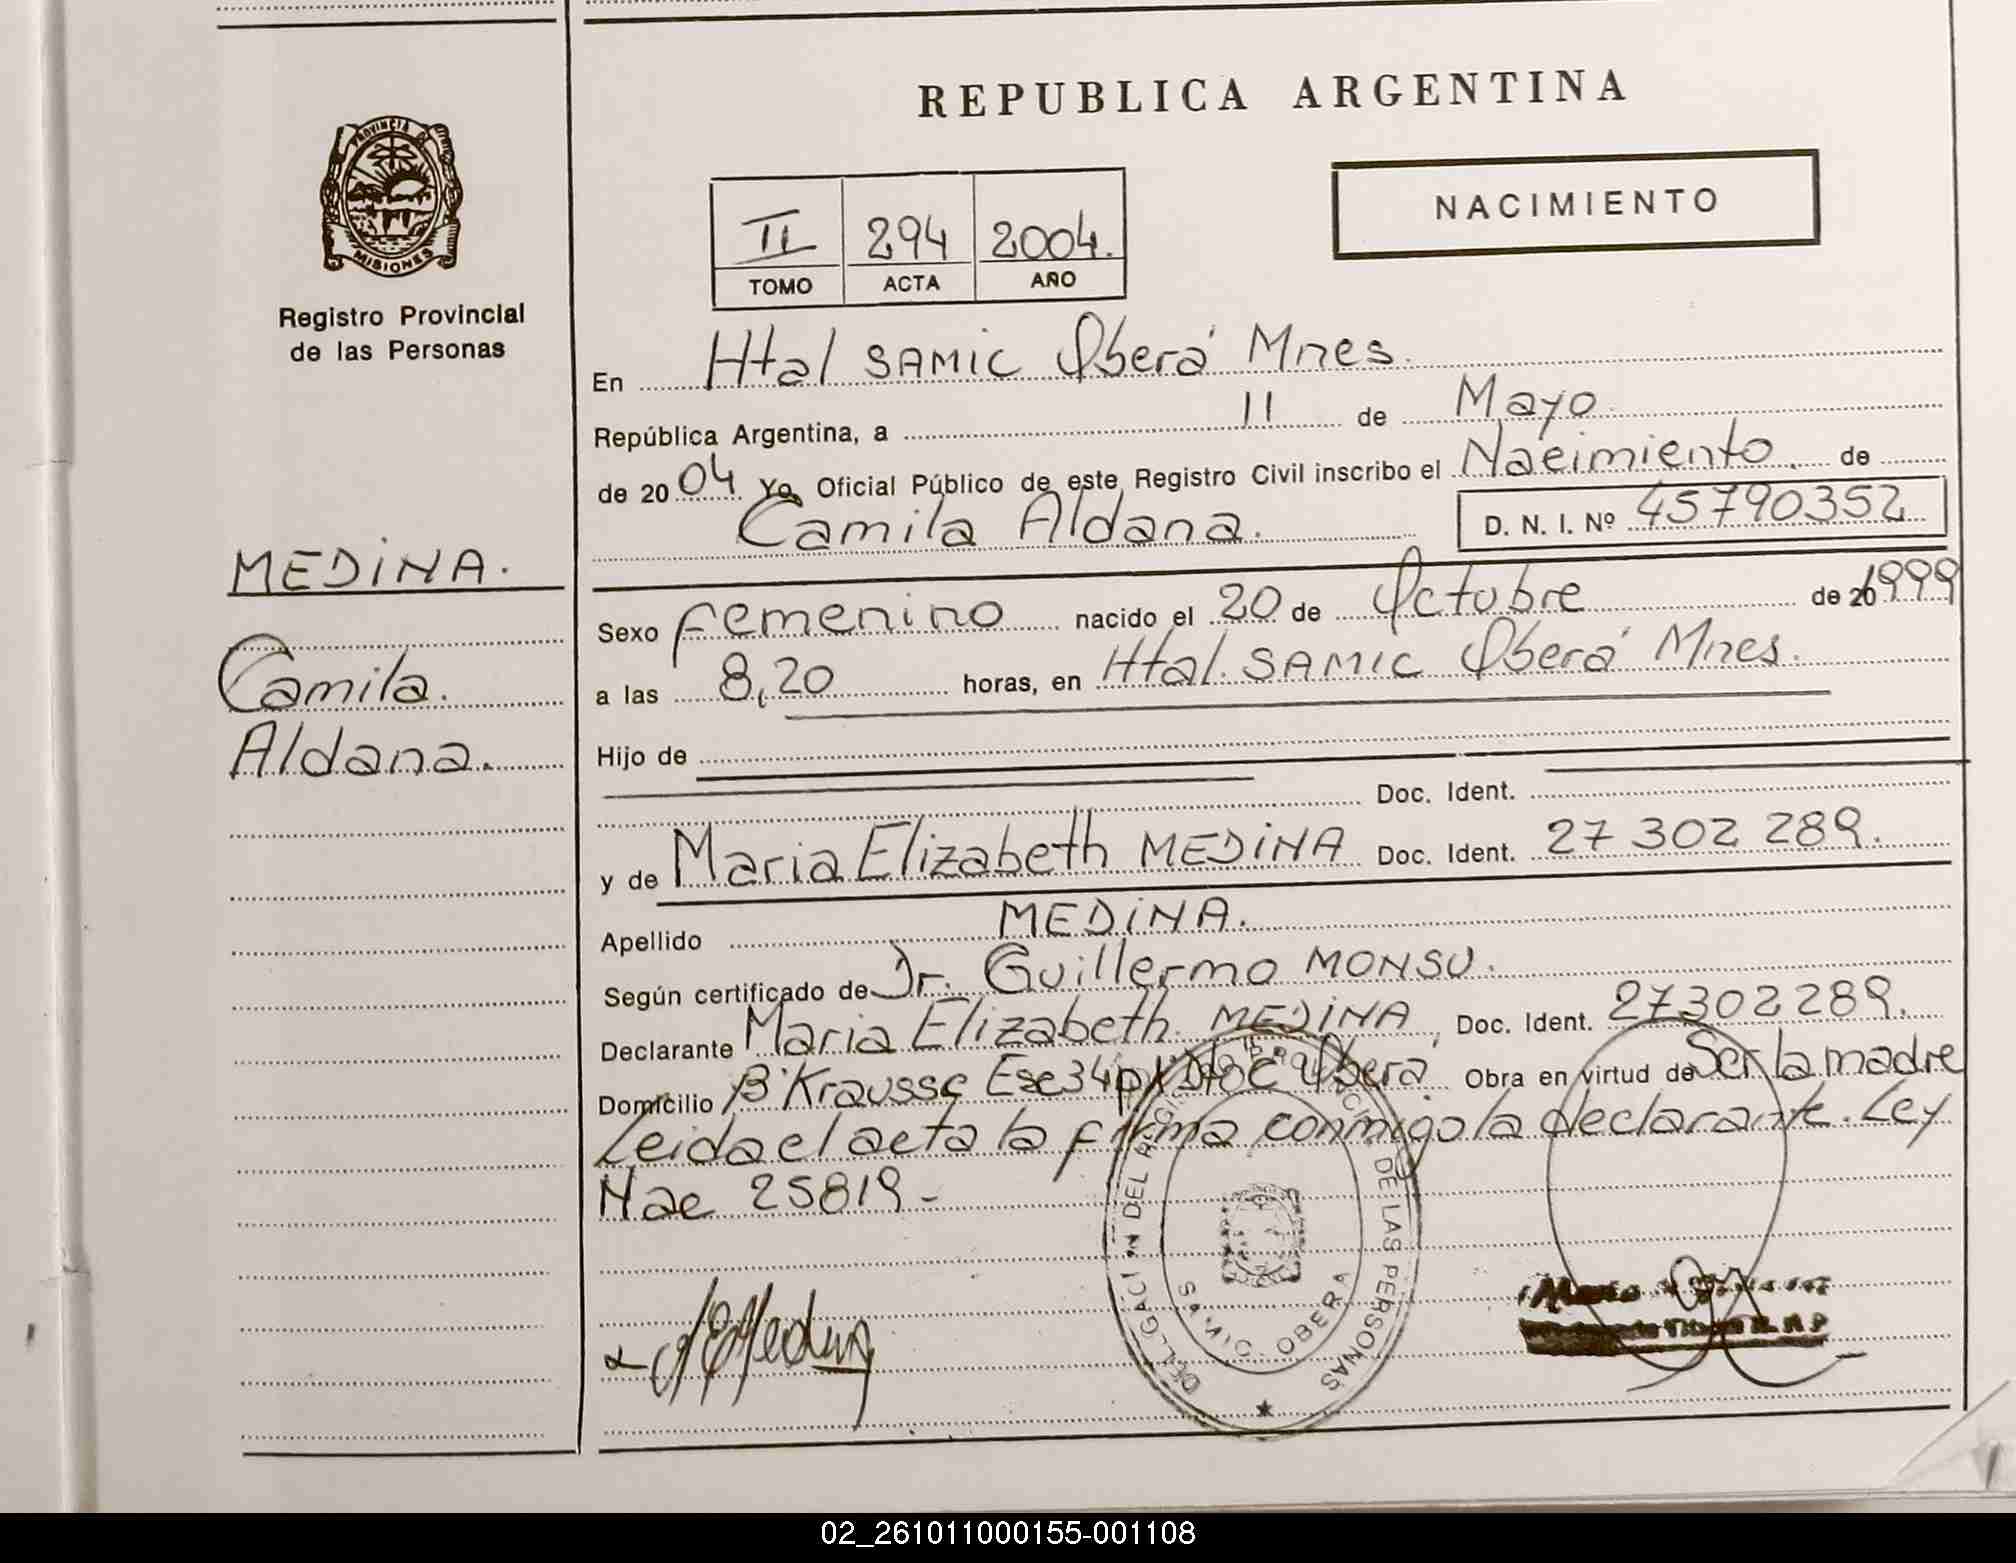 REPUBLICA ARGENTINA
PROVINCIA DE
MISIONES
Registro Provincial
de las Personas
NACIMIENTO
II 294 2004.
TOMO ACTA AÑO
En Htal SAMIC Oberá Mnes.
República Argentina, a 11 de Mayo
de 2004 Yo, Oficial Público de este Registro Civil inscribo el Nacimiento. de
Camila Aldana. D. N. I. Nº 45790352
MEDINA.
Camila.
Aldana.
Sexo Femenino nacido el 20 de Octubre de 1999
a las 8,20 horas, en Htal. SAMIC Oberá Mnes.
Hijo de
Doc. Ident.
y de Maria Elizabeth MEDINA Doc. Ident. 27 302 289.
Apellido MEDINA.
Según certificado de Dr. Guillermo MONSU.
Declarante Maria Elizabeth MEDINA, Doc. Ident. 27302289.
Domicilio Bº Krausse Esc 34 Oberá Obra en virtud de Ser la madre
Leida el acta la firma conmigo la declarante. Ley
Nac 25819-
DE LAS PERSONAS
OBERA
02_261011000155-001108